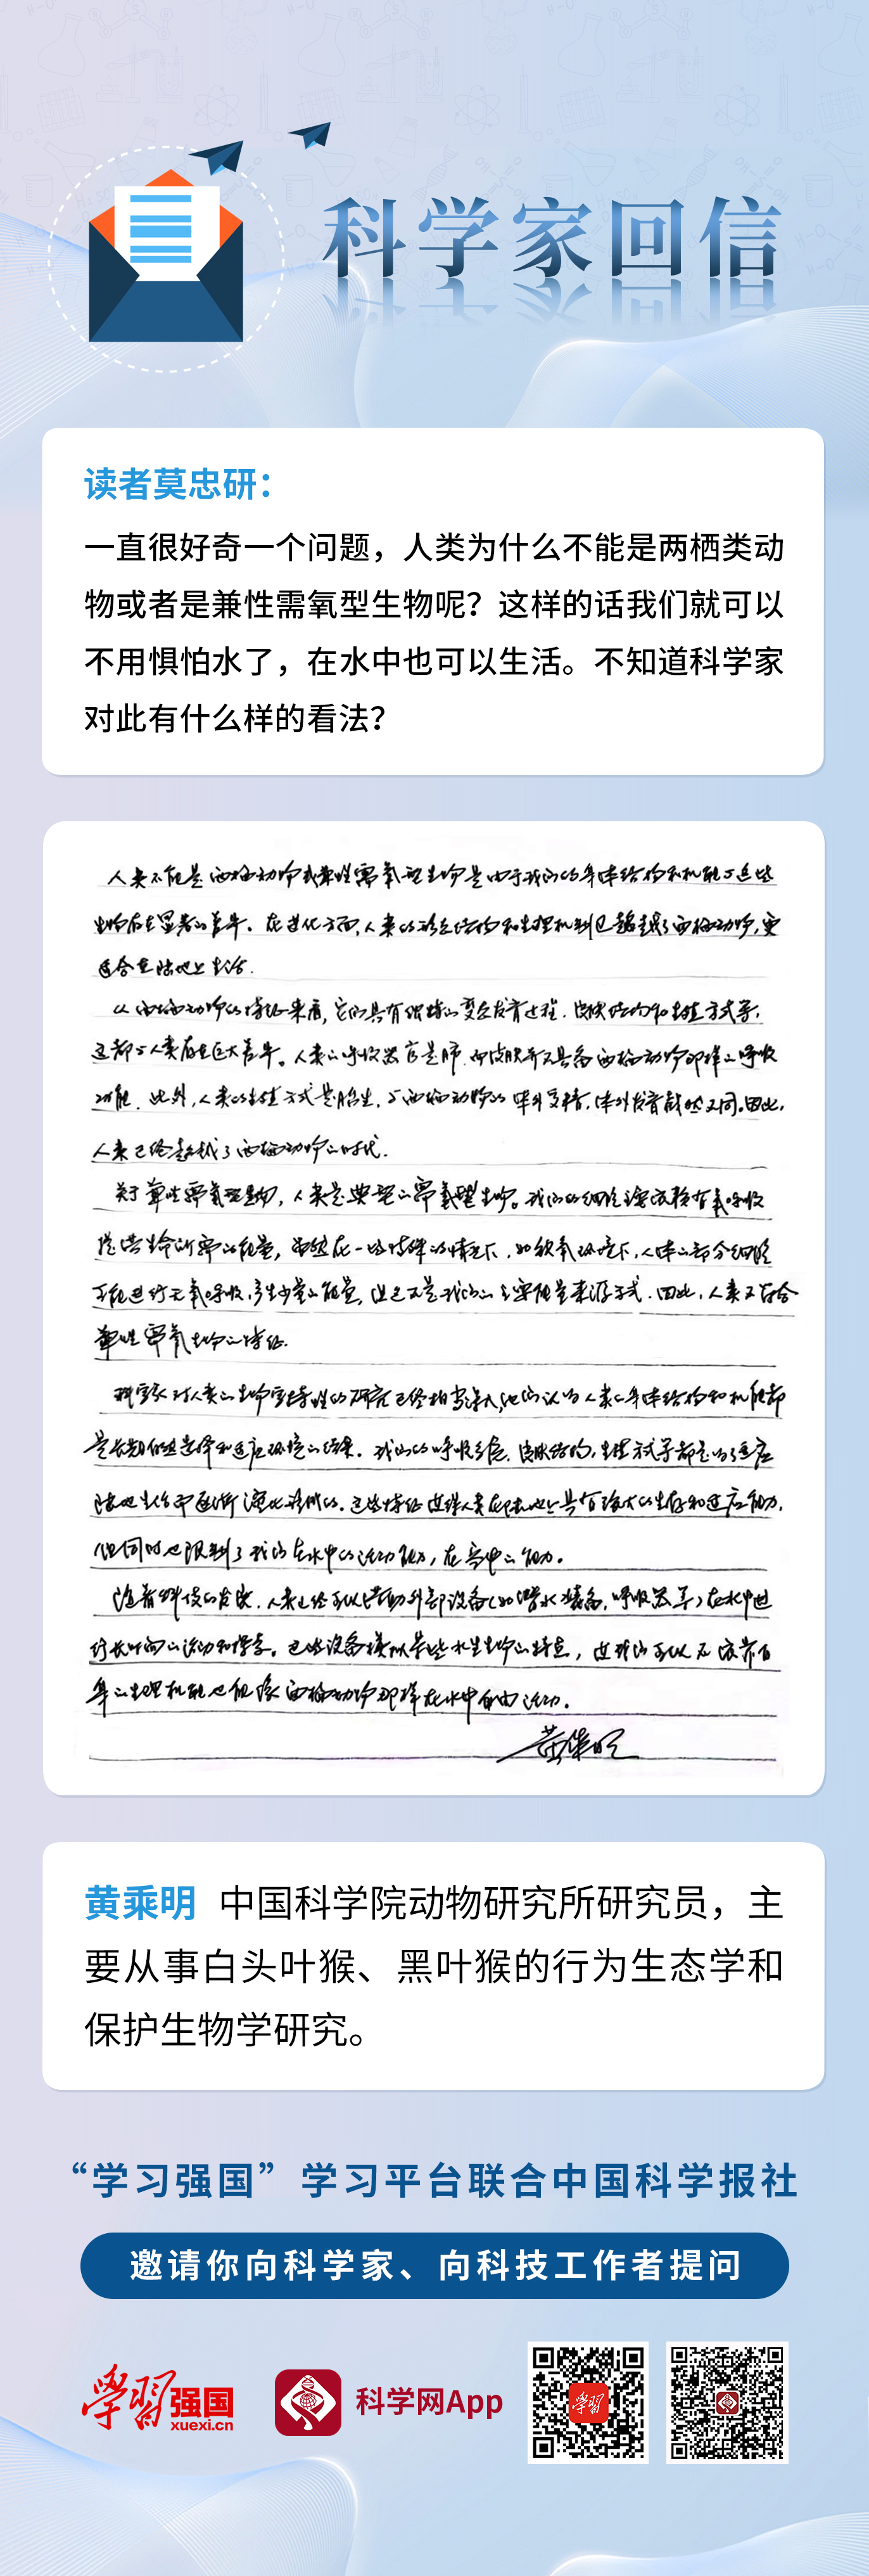 科学家回信
读者莫忠研：
一直很好奇一个问题，人类为什么不能是两栖类动
物或者是兼性需氧型生物呢？这样的话我们就可以
不用惧怕水了，在水中也可以生活。不知道科学家
对此有什么样的看法？
人类不能是两栖动物或兼性需氧型生物是由于我们的身体结构和机能与这些
生物存在显著的差异。在进化方面，人类的形态结构和生理机制已超越了两栖动物，更
适合在陆地上生活.
从两栖动物的特征来看，它们具有独特的变态发育过程.皮肤结构和生殖方式等.
这都与人类存在巨大差异。人类的呼吸器官是肺.而皮肤并不具备两栖动物那样的呼吸
功能.此外，人类的生殖方式是胎生，与两栖动物的体外受精，体外发育截然不同。因此，
人类已经超越了两栖动物的时代.
关于兼性需氧型生物，人类是典型的需氧型生物。我们的细胞主要依赖有氧呼吸
提供生命所需的能量，虽然在一些特殊的情况下，如缺氧环境下，人体的部分细胞
可能进行无氧呼吸，产生少量的能量，但这不是我们的主要能量来源方式.因此，人类不符合
兼性需氧生物的特征.
科学家对人类的生命独特性的研究已经相当深入，他们认为人类的身体结构和机能都
是长期自然选择和适应环境的结果.我们的呼吸系统、皮肤结构，生殖方式等都是为了适应
陆地生活而逐渐演化形成的.这些特征使得人类在陆地上具有强大的生存和适应能力，
但同时也限制了我们在水中的活动能力，在高中的能力。
随着科技的发展，人类已经可以借助外部设备（如潜水装备，呼吸器等）在水中进
行长时间的活动和探索。这些设备模拟某些水生生物的特点，使我们可以不依靠自
身的生理机能也能像两栖动物那样在水中自由活动.
黄乘明
黄乘明 中国科学院动物研究所研究员，主
要从事白头叶猴、黑叶猴的行为生态学和
保护生物学研究。
“学习强国”学习平台联合中国科学报社
邀请你向科学家、向科技工作者提问
学習强国
xuexi.cn
科学网App
学習